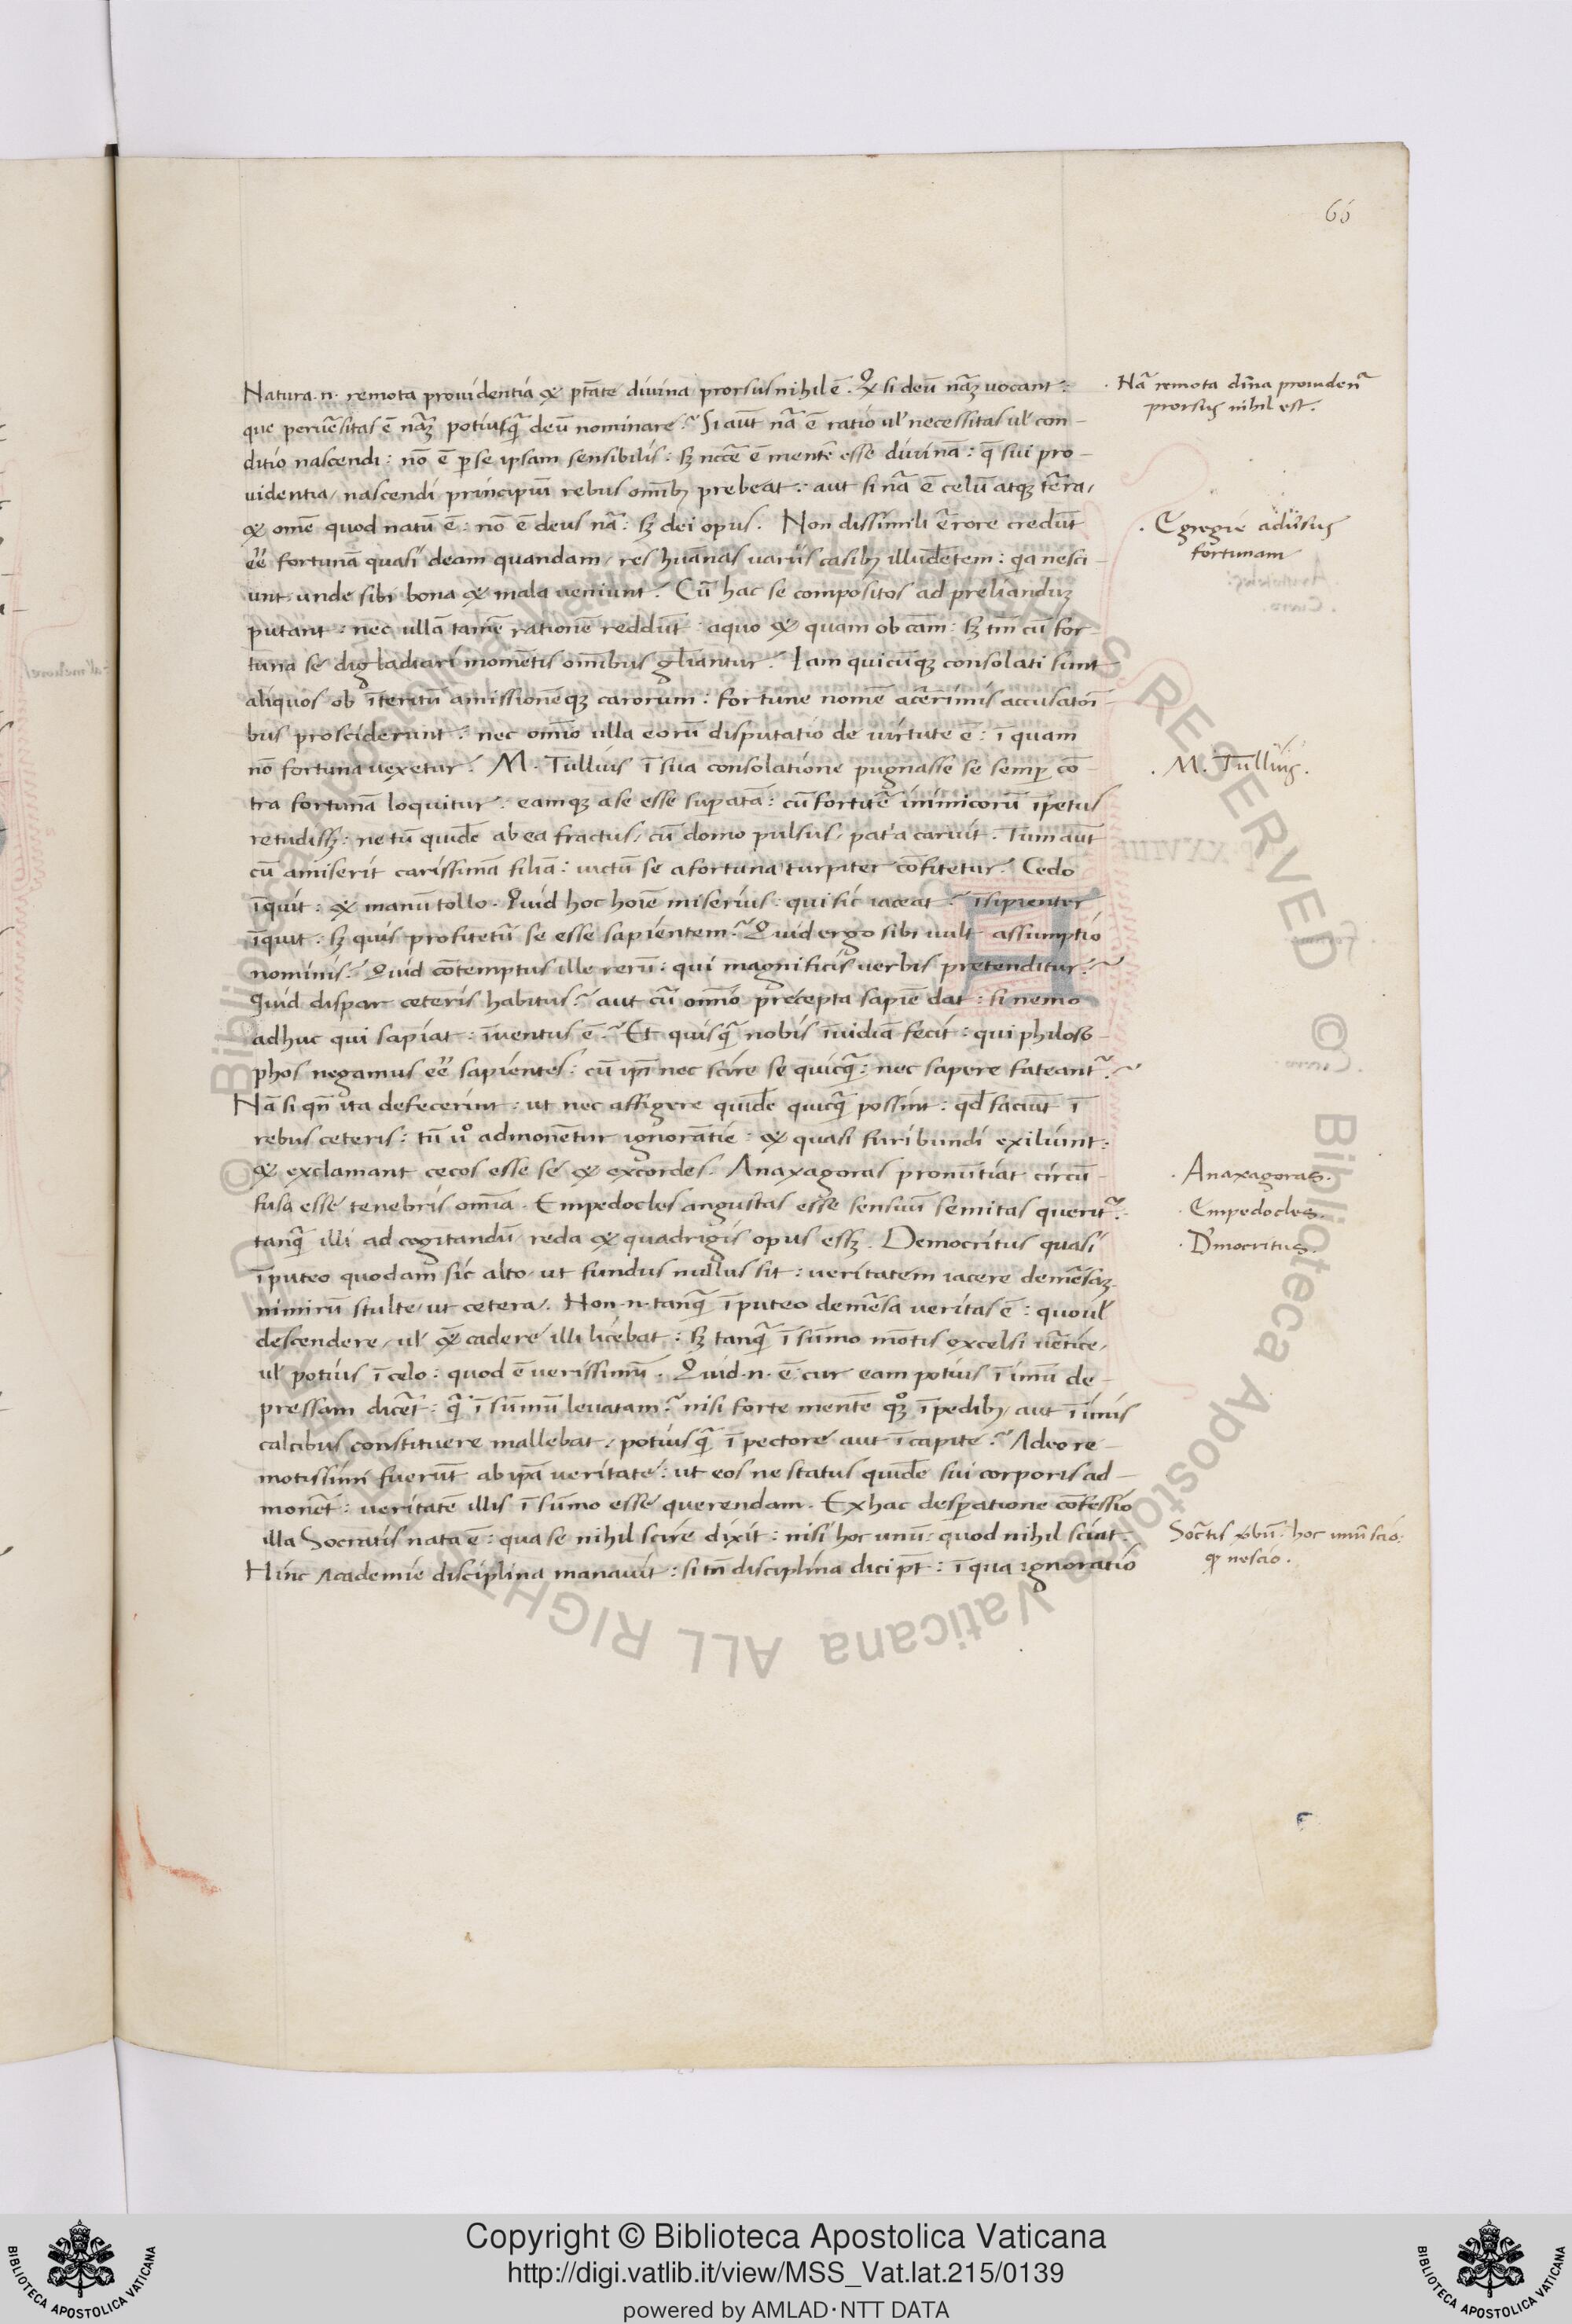 66
Natura .n. remota prouidentia & ptāte diuina prorsus nihil ē. Qđ si deū nāꝫ uocant:
que peruēsitas ē nāꝫ potiusq̄ deū nominare? Si aūt nā ē ratio ul' necessitas ul' con-
ditio nascendi: nō ē p se ipsam sensibilis: sꝫ nccē ē mentē esse diuinā: q̄ sui pro-
uidentia/ nascendi principiū rebus omībꝫ prebeat: aut si nā ē celū atqꝫ tērra/
& omē quod natū ē: nō ē deus nā: sꝫ dei opus. Non dissimili ērrore credūt
eē fortunā quasi deam quandam/ res huānas uariis casibꝫ illudētem: qa nesci-
unt unde sibi bona & mala ueniunt. Cū hac se compositos ad prelianduꝫ
putant: nec ullā tamē rationē reddūt: aquo & quam ob cām: sꝫ tm̄ cū for-
tuna se digladiari momētis omībus gl̄iantur. Iam quicūqꝫ consolati sunt
aliquos ob īteritū amissionēqꝫ carorum: fortune nomē acērimis accusatoī-
bus prosciderunt: nec omīo ulla eorū disputatio de uirtute ē: ī quam
nō fortuna uexetur. M. Tullius ī sua consolatione pugnasse se semp cō-
tra fortunā loquitur: eamqꝫ a se esse supatā: cū fortitē inimicorū īpetus
retudissꝫ: ne tū quidē ab ea fractus/ cū domo pulsus/ pat'a caruit. Tum aūt
cū amiserit carissimā filiā: uictū se a fortuna turpiter cōfitetur. Cedo
īquit: & manū tollo. Quid hoc hoīe miserius: qui sic iaceat? īsipienter
īquit: sꝫ quis profitetū se esse sapientem? Quid ergo sibi uult assumptio
nominis? Quid cōtemptus ille rerū: qui magnificis uerbis pretenditur?
Quid dispar ceteris habitus? aut cū omīo precepta sapiē dat: si nemo
adhuc qui sapiat: īuentus ē? Et quisq̄ nobis īuidiā fecit: qui philoso-
phos negamus eē sapientes: cū ip̄i nec scire se quicq̄: nec sapere fateant̄?
Nā si qn̄ ita defecerint: ut nec affigere quidē quicq̄ possint: qd̄ faciūt ī
rebus ceteris: tū uº admonētur ignorātie: & quasi furibundi exiliunt:
& exclamant cecos esse se & excordes. Anaxagoras pronūtiat circū-
fusa esse tenebris omīa. Empedocles angustas esse sensuū semitas querit̄:
tanq̄ illi ad cogitandū/ reda & quadrigis opus essꝫ. Democritus quasi
ī puteo quodam sic alto/ ut fundus nullus sit: ueritatem iacere demēsaꝫ.
nimirū stulte/ ut cetera/. Non .n. tanq̄ ī puteo demēsa ueritas ē: quo ul'
descendere/ ul' & cadere illi licebat: sꝫ tanq̄ ī sūmo mōtis excelsi uērtice/
ul' potius ī celo: quod ē uerissimū. Quid .n. ē cur eam potius ī imū de-
pressam dicēt: q̄ ī sūmū leuatam? nisi forte mentē qꝫº ī pedibꝫ/ aut ī imis
calcibus constituere mallebat/ potiusq̄ ī pectore aut ī capite? Adeo re-
motissimi fuerūt ab ip̄a ueritate: ut eos ne status quidē sui corporis ad-
monēt: ueritatē illis ī sūmo esse querendam. Ex hac despatione cōfessio
illa Socratis nata ē: qua se nihil scire dixit: nisi hoc unū: quod nihil sciat.
Hinc Academie disciplina manauit: si tn̄ disciplina dici pt̄: ī qua ignoratio
· Nā remota diīna prouidenā
prorsus nihil est.
· Egregie adūsus
fortunam
· M. Tullius.
· Anaxagoras.
· Empedocles.
· D'mocritus.
Socātis ūbū: hoc unū scio:
qꝫ nescio.
© Biblioteca Apostolica Vaticana ALL RIGHTS RESERVED
Copyright © Biblioteca Apostolica Vaticana
http://digi.vatlib.it/view/MSS_Vat.lat.215/0139
powered by AMLAD·NTT DATA
BIBLIOTECA APOSTOLICA VATICANA
BIBLIOTECA APOSTOLICA VATICANA